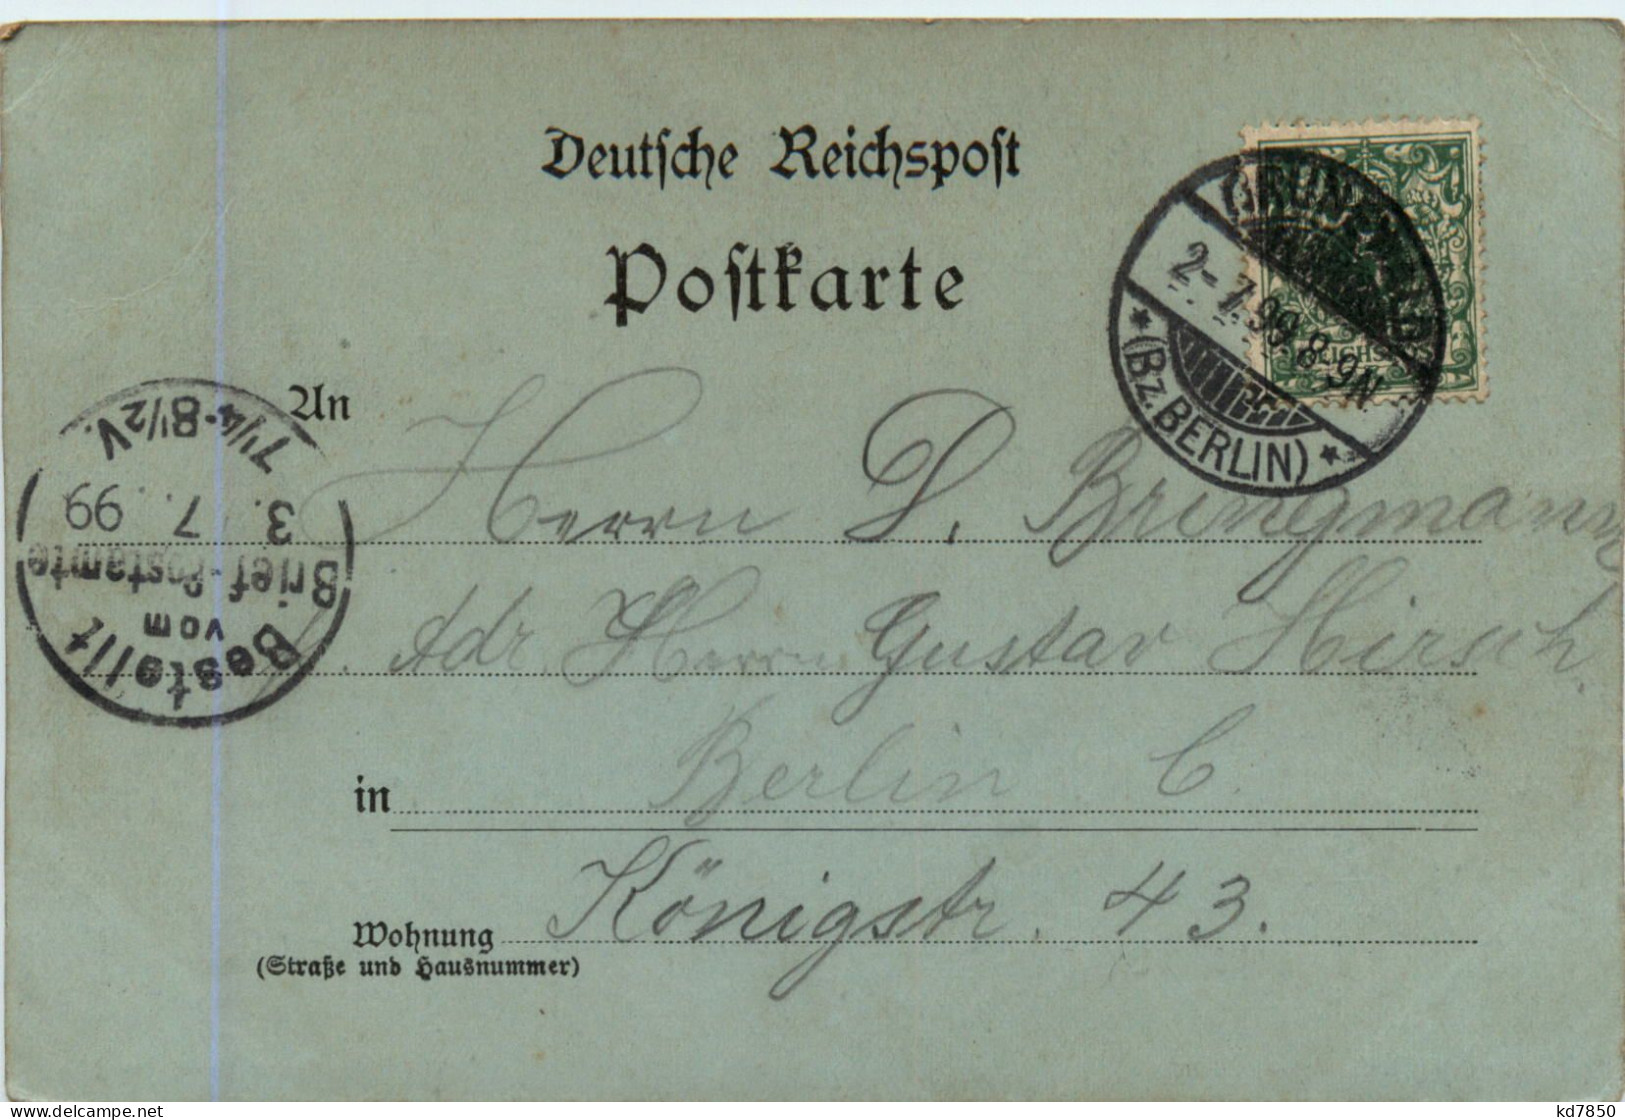 Deutsche Reichspost
Postkarte
GRUNEWALD
2-7.99.8-9N.
REICHSPOST
* (BZ. BERLIN) *
7¼-8½V.
3. 7. 99
Brief-Postamte
vom
Bestellt
An Herrn D. Bringmann
Adr. Herrn Gustav Hirsch.
in Berlin C.
Wohnung Königstr. 43.
(Straße und Hausnummer)
delcampe.net
kd7850